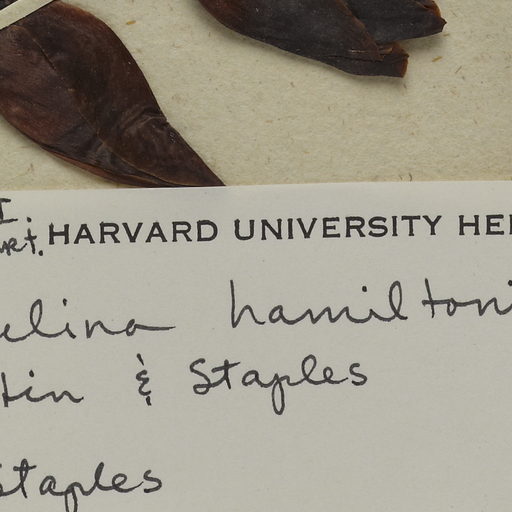 I.
HARVARD UNIVERSITY HE
elina hamiltoni
tin & Staples
Staples